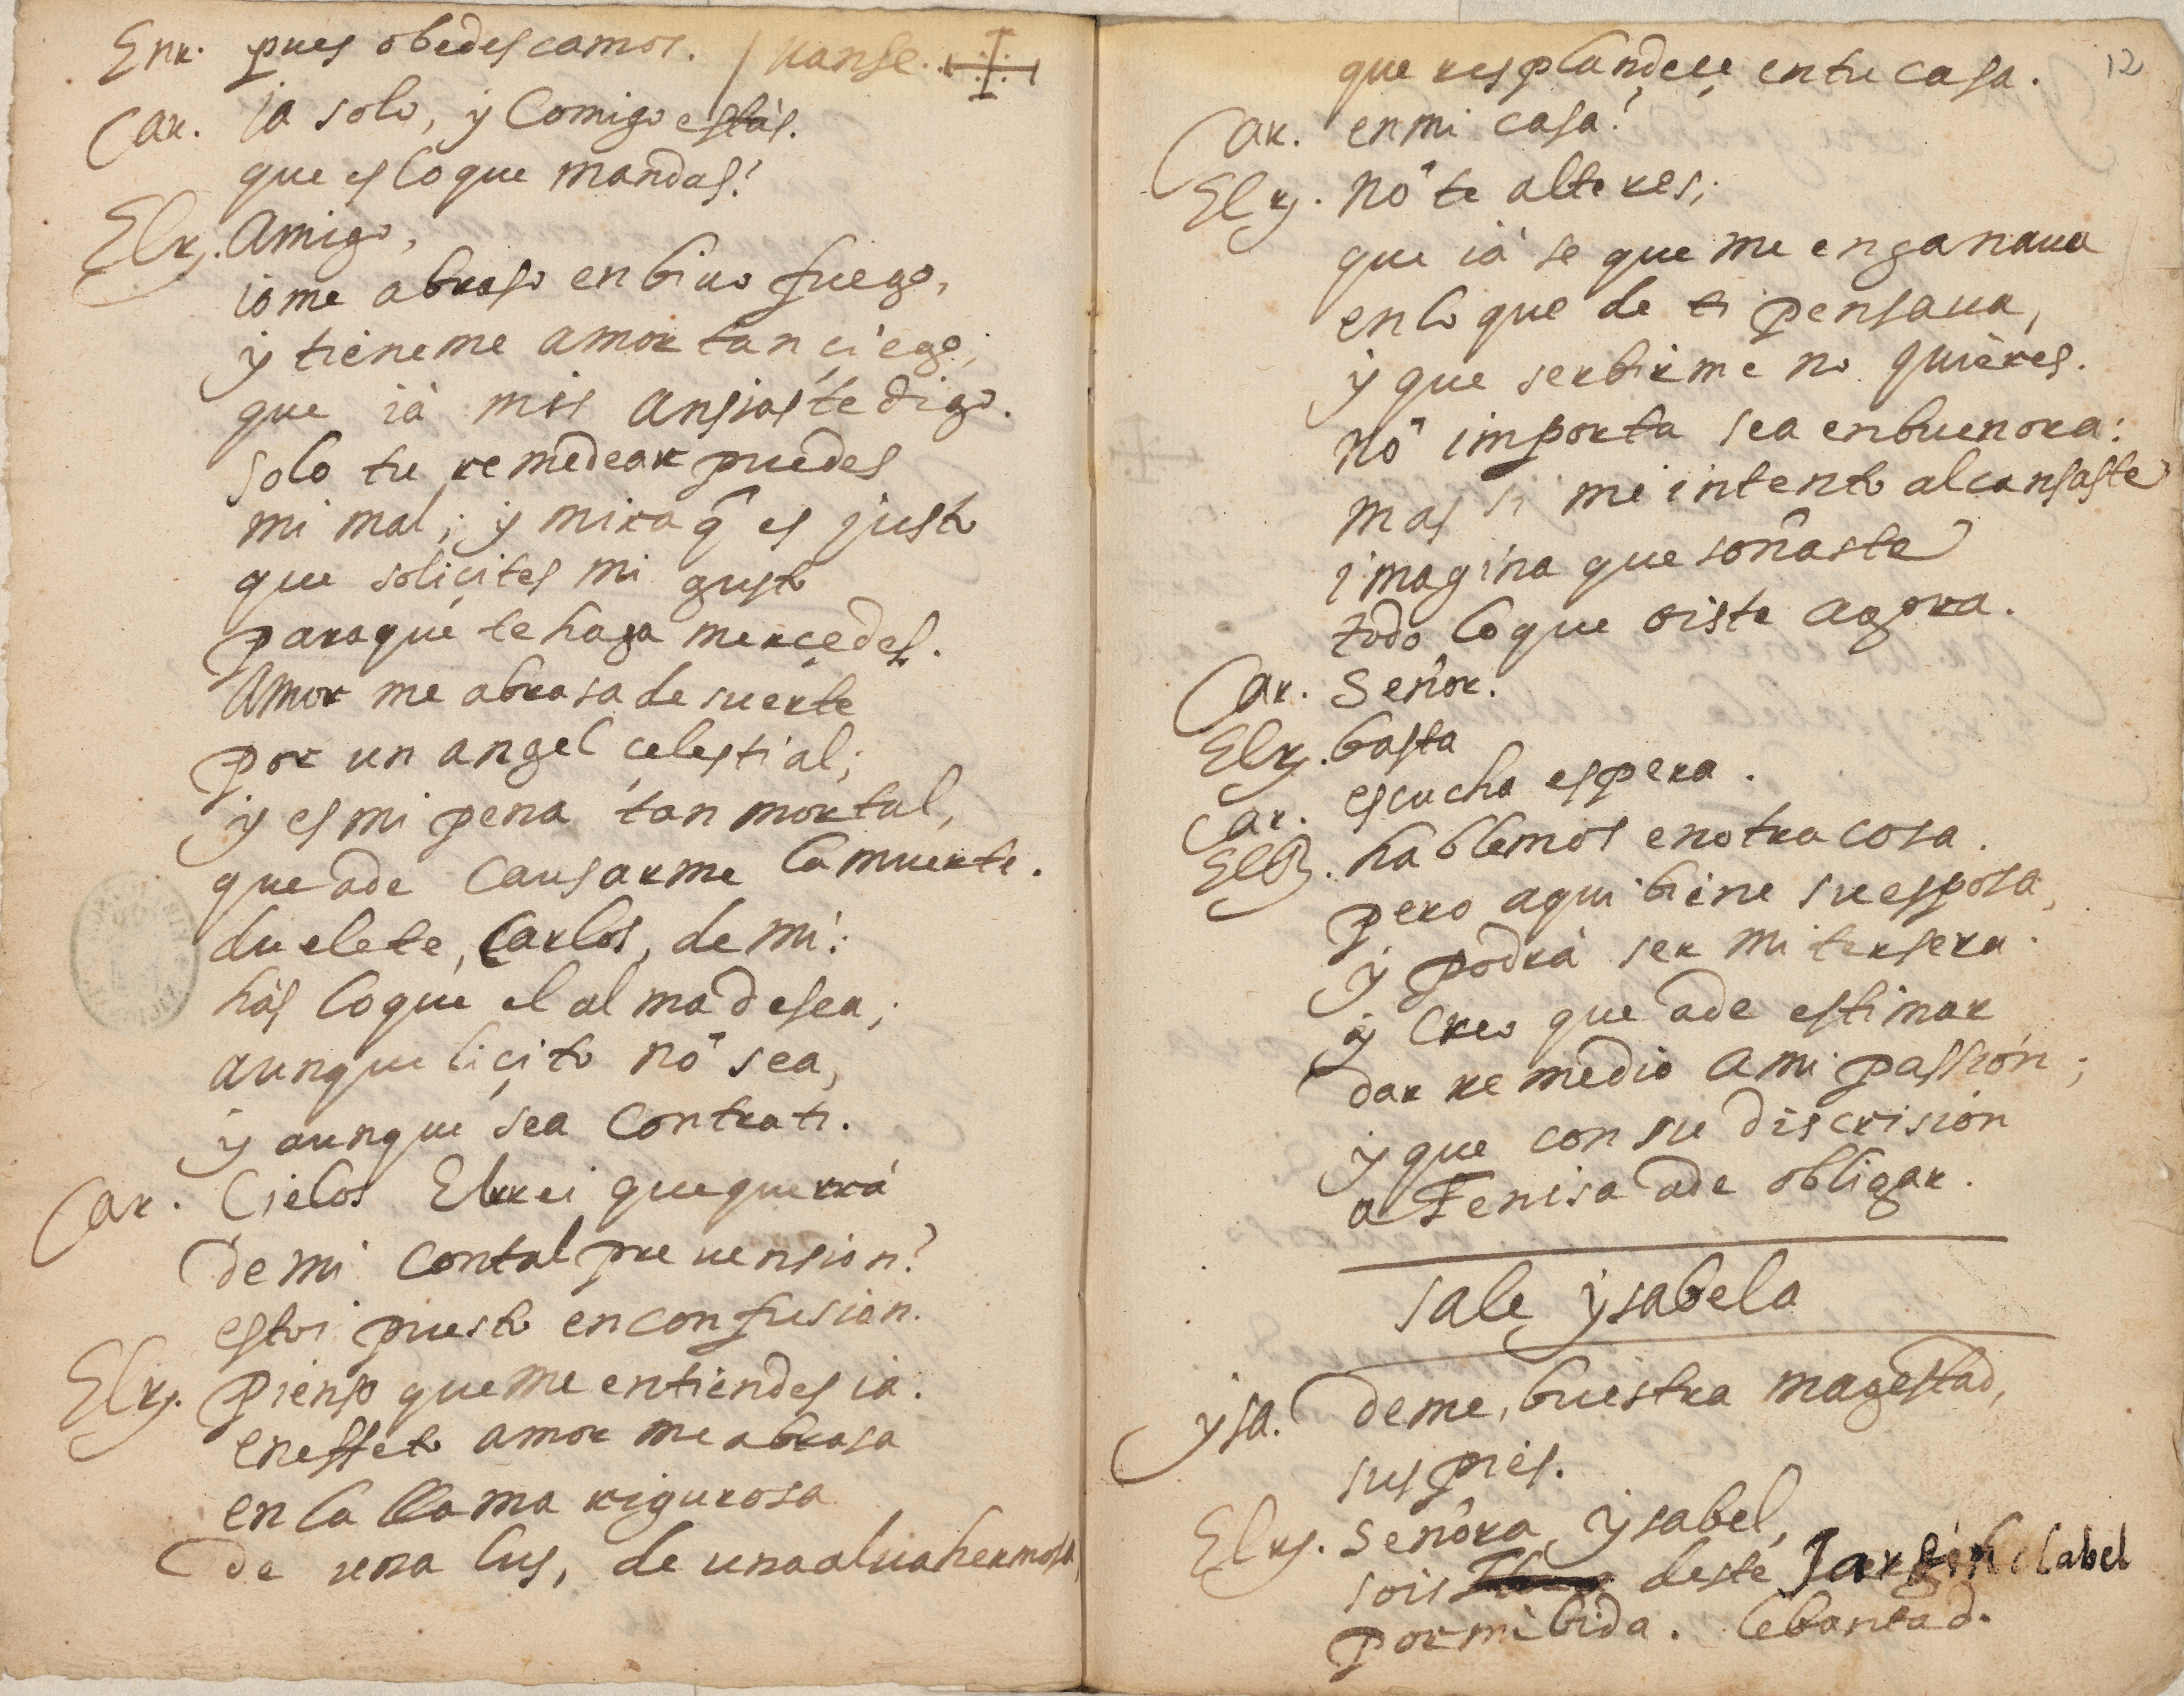 Enr. pues obedescamos. / vanse.
Car. ia solo, y Comigo estás.
que es lo que mandas?
El ry. Amigo,
io me abraso en bivo fuego,
y tieneme amor tan çiego,
que ià mis ansias te digo.
solo tu remedear puedes
mi mal; y mira q̃ es justo
que soliçites mi gusto
paraque te haga merçedes.
Amor me abrasa de suerte
por un angel çelestial;
y es mi pena tan mortal,
que ade Causarme la muerte.
duelete, Carlos, de mi:
hàs lo que el alma desea;
aunque liçito nò sea,
y aunque sea Contra ti.
Car. Cielos El rrei que querrá
de mi Con tal prevension?
estoi puesto en confusion.
El ry. Pienso que me entiendes ia.
en effeto amor me abrasa
en la llama rigurosa
De una lus, de una alva hermosa
12
que resplandeçe en tu casa.
Car. en mi casa?
El ry. Nò te alteres;
que ià se que me enganava
en lo que de ti pensava,
y que serbirme no quieres.
nò importa sea enbuenora:
mas si mi intento alcansaste
imagina que soñaste
todo lo que oiste agora.
Car. Señor.
El ry. basta
Car. escucha espera.
El R. hablemos en otra cosa.
pero aqui biene su esposa,
y podrà ser mi tersera.
y Creo que ade estimar
dar remedio a mi passion;
y que con su discrision
a Fenisa ade obligar.
sale ysabela
ysa. Deme, buestra magestad,
sus pies.
El ry. Señora, Ysabel,
sois deste Jardin clabel
por mi bida. lebantad.